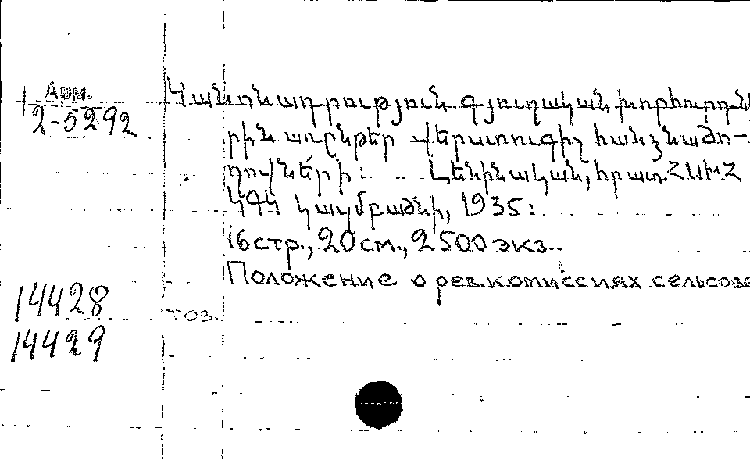 Арм.
2-5292
Կանոնադրություն գյուղական խորհուրդն
րին առընթեր վերստուգիչ հանձնաժո-
ղովների: Լենինական, հրատ. ՀՍԽՀ
կայմբաժնի, 1935:
16 стр., 20 см., 2500 экз.
Положение о ревкомиссиях сельсове
14428
14429
тоз.